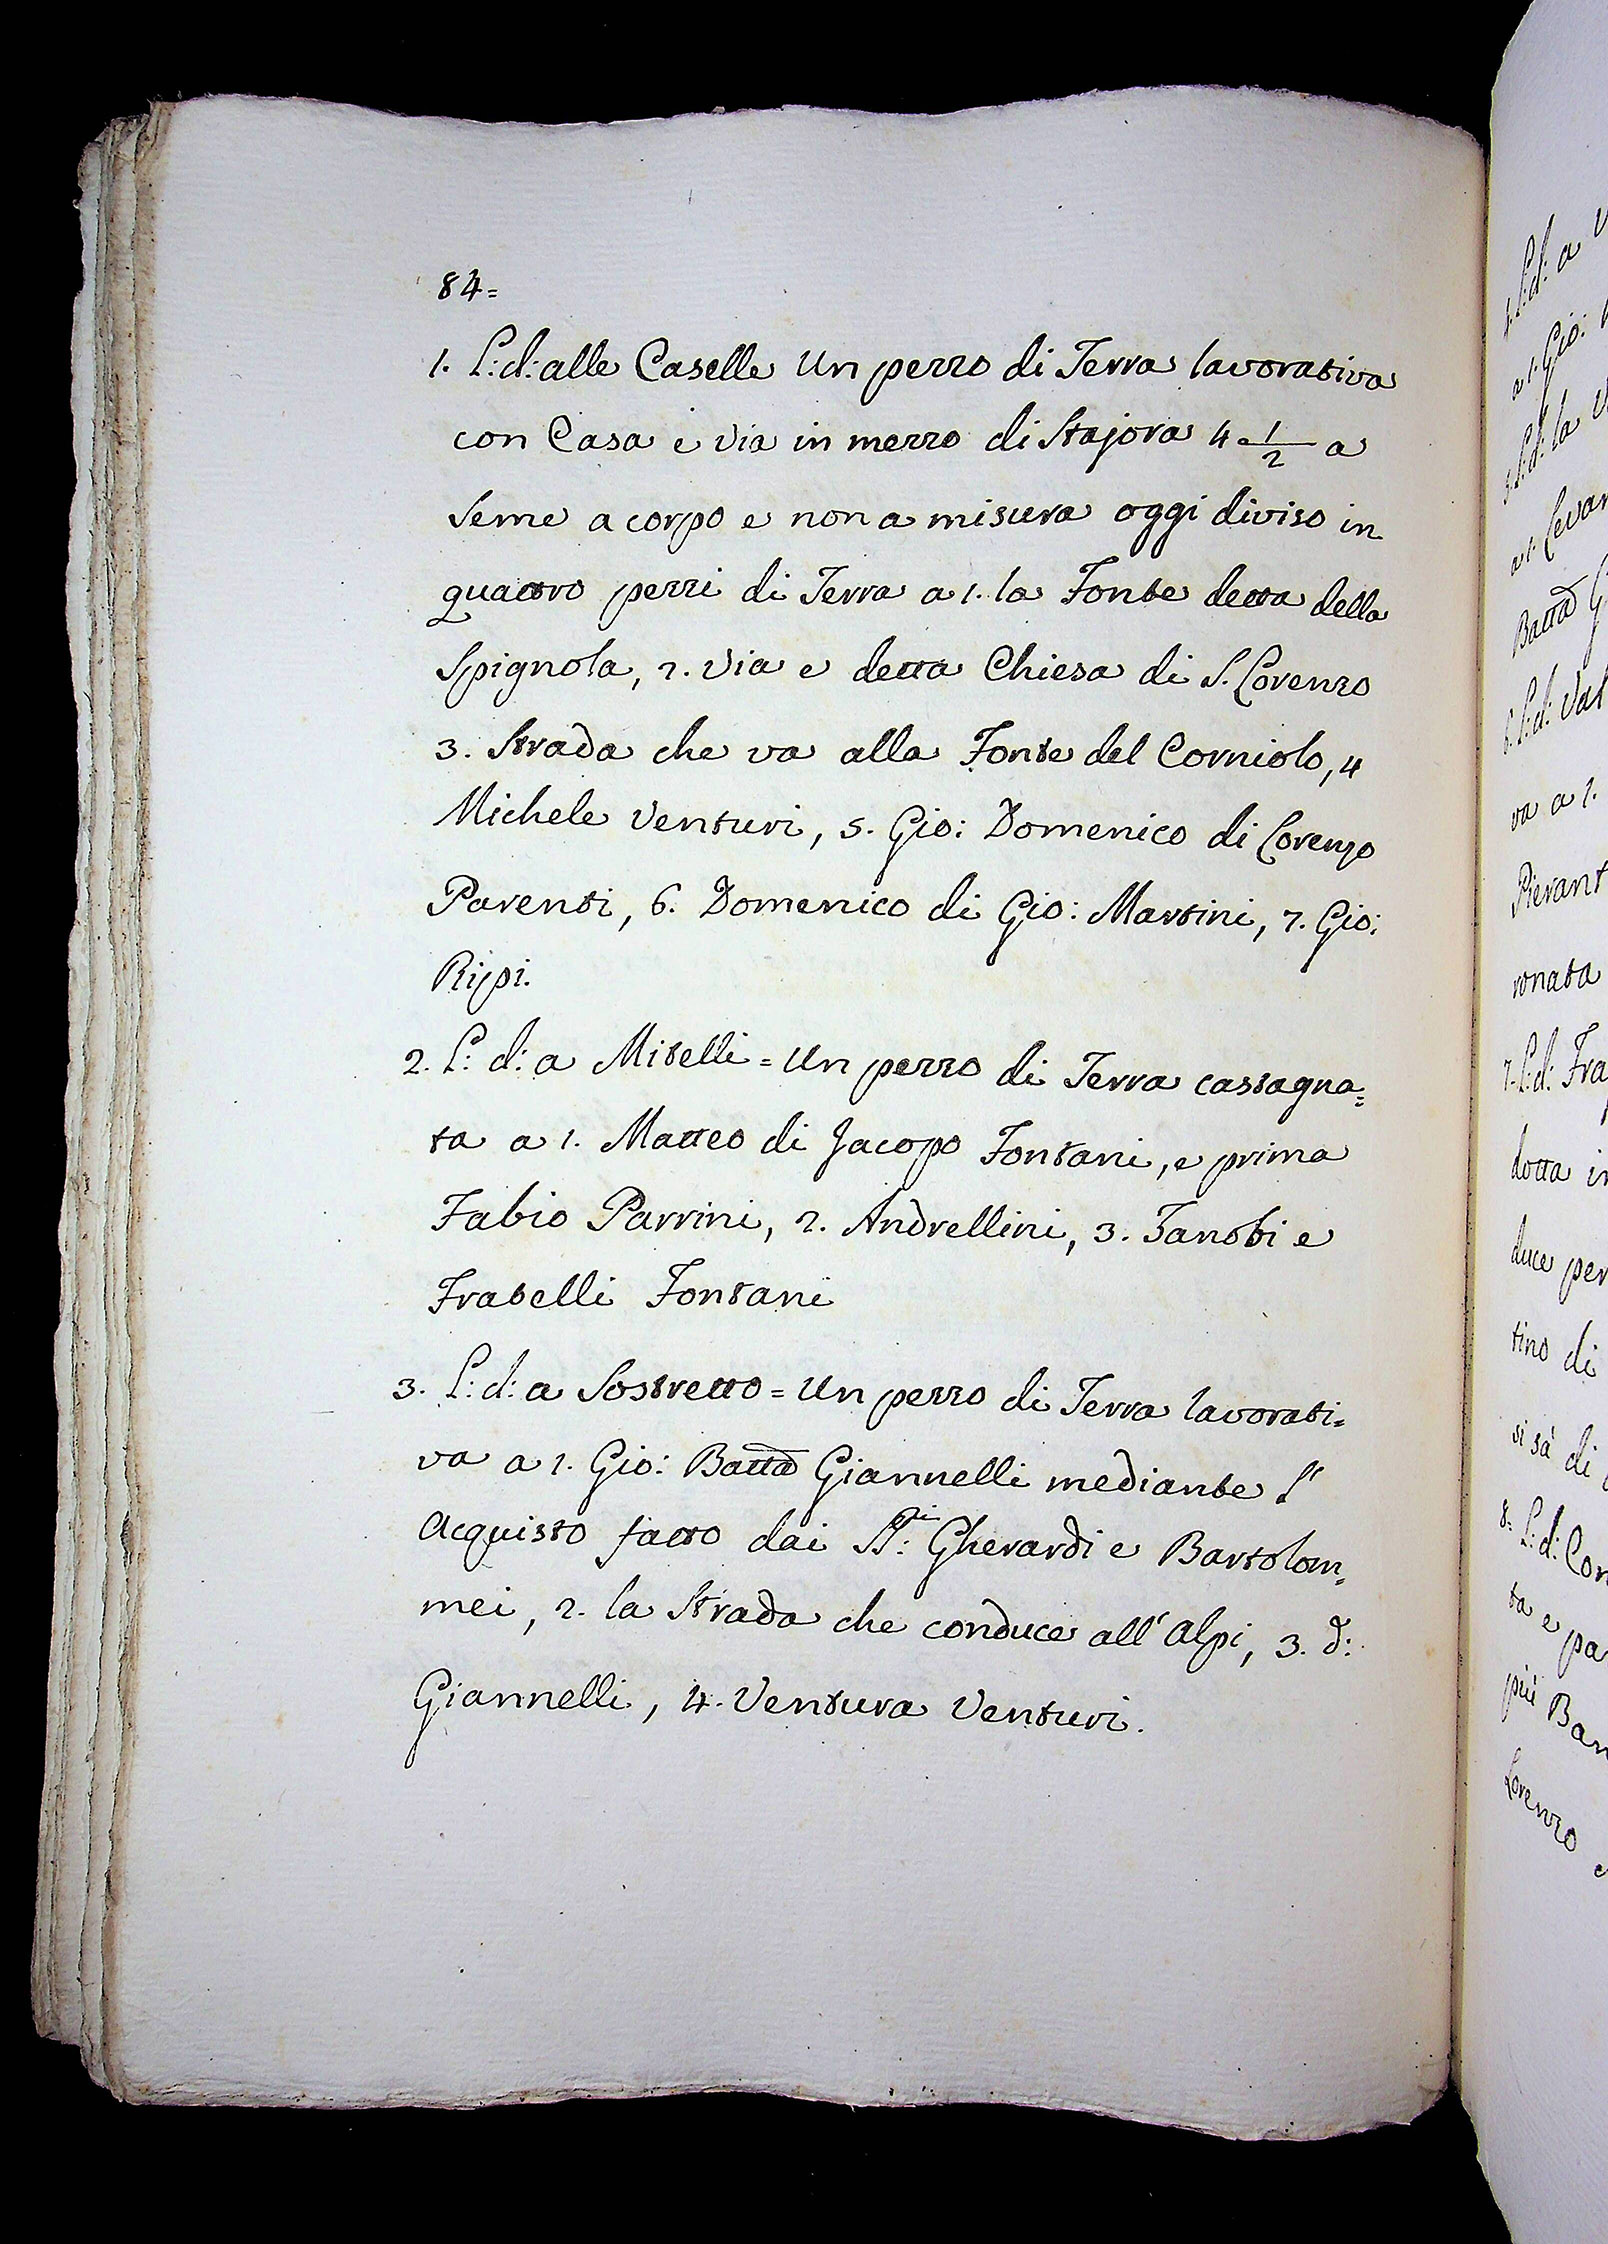 84=
1. L: d: alle Caselle Un pezzo di Terra lavorativa
con Casa e Via in mezzo di Stajora 4 1/2 a
Seme a corpo e non a misura oggi diviso in
quattro pezzi di Terra a 1. la Fonte detta della
Spignola, 2. Via e detta Chiesa di S. Lorenzo
3. Strada che va alla Fonte del Corniolo, 4
Michele Venturi, 5. Gio: Domenico di Lorenzo
Parenti, 6. Domenico di Gio: Martini, 7. Gio:
Ripi.
2. L: d: a Mitelli = Un pezzo di Terra castagna=
ta a 1. Matteo di Jacopo Fontani, e prima
Fabio Parrini, 2. Andrellini, 3. Zanobi e
Fratelli Fontani
3. L: d: a Sostretto = Un pezzo di Terra lavorati=
va a 1. Gio: Batta Giannelli mediante l'
Acquisto fatto dai SS:ri Gherardi e Bartolom=
mei, 2. la Strada che conduce all'Alpi, 3. d:
Giannelli, 4. Ventura Venturi.
4. L: d: a
a 1. Gio:
5. L: d: la
a 1.
Batta
6. L: d: Val
va a 1.
Pierant
ronata
7. L: d: Fra
dotta in
duce per
tino di
si sà di
8= L: d: Cor
ta e pa
più Ban
Lorenzo